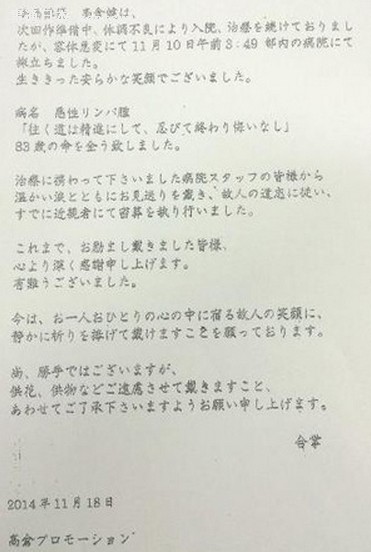 高倉健は、
次回作準備中、体調不良により入院、治療を続けておりまし
たが、容体急変にて11月10日午前3:49 都内の病院にて
旅立ちました。
生ききった安らかな笑顔でございました。
病名 悪性リンパ腫
「往く道は精進にして、忍びて終わり悔いなし」
83歳の命を全う致しました。
治療に携わって下さいました病院スタッフの皆様から
温かい涙とともにお見送りを戴き、故人の遺志に従い、
すでに近親者にて密葬を執り行いました。
これまで、お励まし戴きました皆様、
心より深く感謝申し上げます。
有難うございました。
今は、お一人おひとりの心の中に宿る故人の笑顔に、
静かに祈りを捧げて戴けますことを願っております。
尚、勝手ではございますが、
供花、供物などご遠慮させて戴きますこと、
あわせてご了承下さいますようお願い申し上げます。
合掌
2014年11月18日
高倉プロモーション